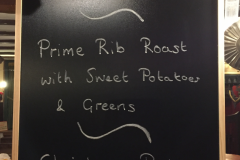 Prime Rib Roast
with Sweet Potatoes
& Greens